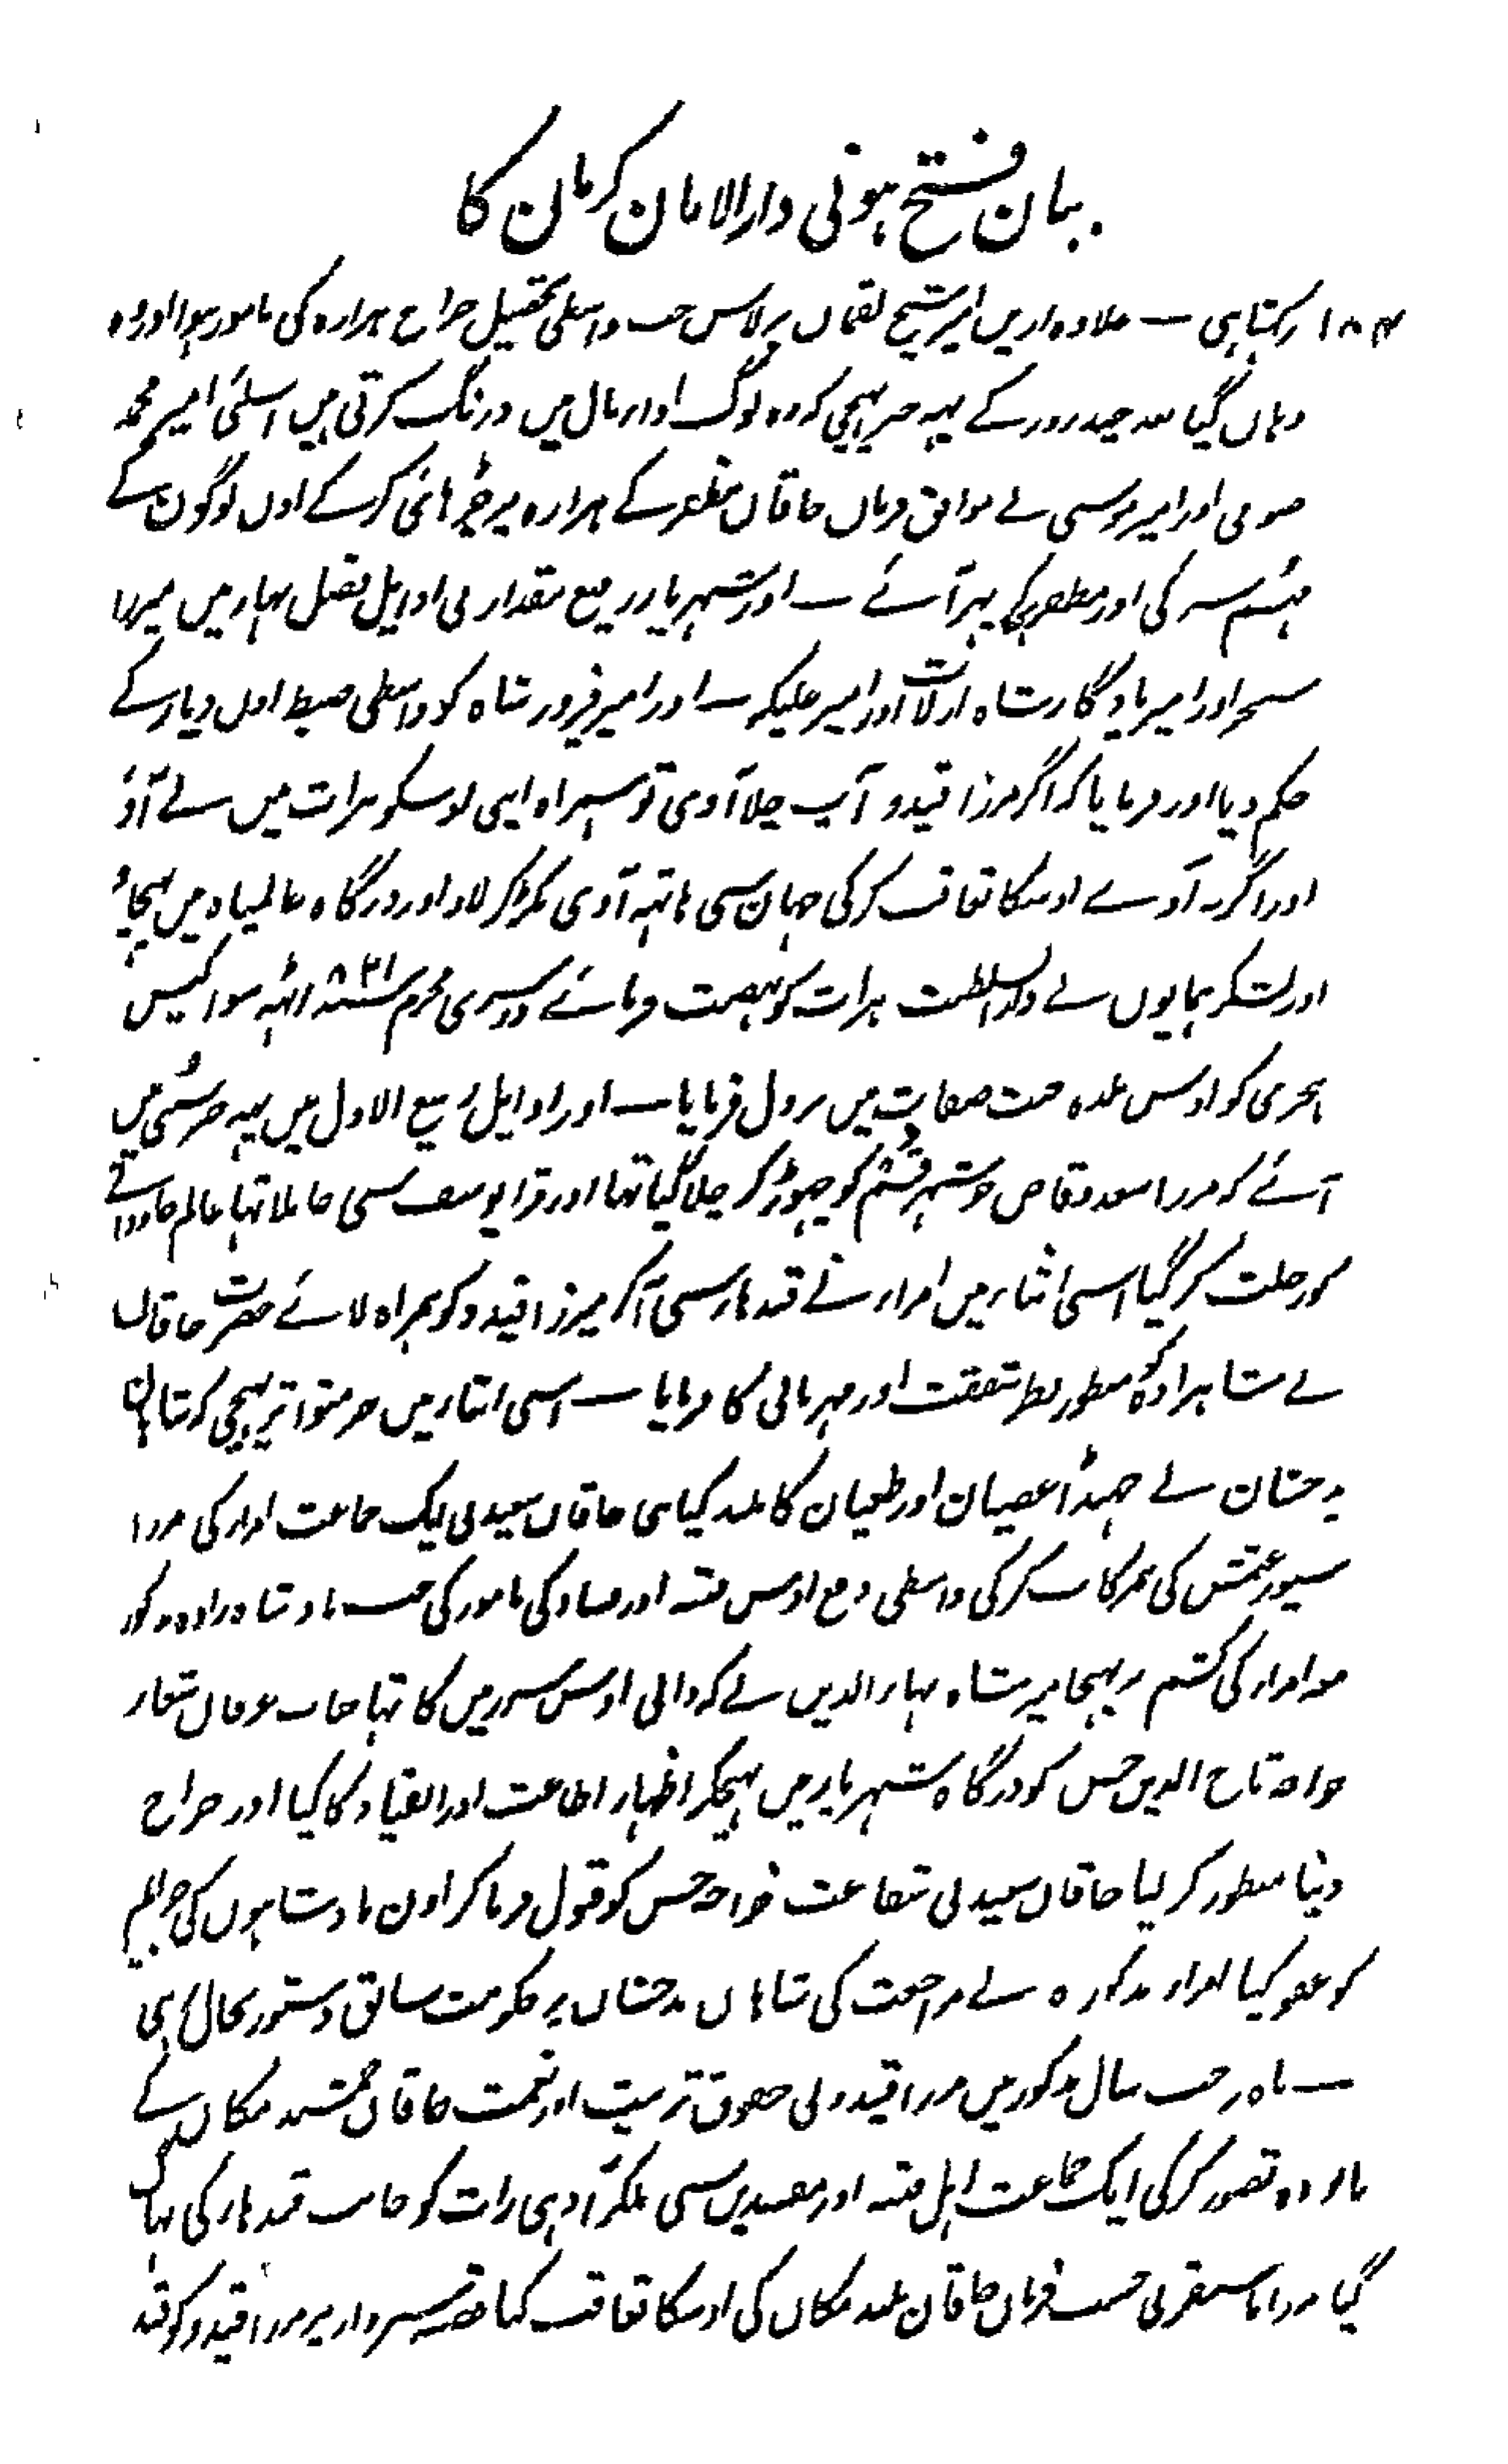 بیان فتح ہونی دارالامان کرمان کا
۱۸۴ رکہتا ہی ۔ علاوہ ازیں امیر شیخ لقمان برلاس جب واسطی تحصیل خراج ہزارہ کی مامور ہوا اور وہ
وہاں گیا بعد چند روز کے یہہ خبر بہیجی کہ وہ لوگ ادار مال میں درنگ کرتی ہیں اسلئی امیر محمد
صوفی اور امیر موسی نے موافق فرمان خاقان مظفر کے ہزارہ پر چڑہائی کرکے اون لوگون کے
کی اور مظفر ہوکی پہر آئے ۔ اور شہریار ربیع مقدار نی اوایل فصل بہار میں میرزا
سنجر اور امیر یادگار شاہ ارلات اور امیر علیکہ ۔ اور امیر فیروز شاہ کو واسطی ضبط اوس دیار کے
حکم دیا اور فرمایا کہ اگر مرزا قیدو آپ چلا آوی تو ہمراہ اپنی اوسکو ہرات میں لے آؤ
اور اگر نہ آوے اوسکا تعاقب کرکی جہان سی ہاتہہ آوی پکڑ کر لاؤ اور درگاہ عالمپناہ میں پہنچاؤ
اور لشکر ہمایوں نے دارالسلطنت ہرات کو نہضت فرمائے دوسری محرم ۸۲۱ سنہ اٹہہ سو اکیس
ہجری کو اوس بلدہ جنت صفات میں نزول فرمایا ۔ اور اوایل ربیع الاول میں یہہ خبر سننی میں
آئے کہ مرزا سعد وقاص جو شہر قم کو چہوڑ کر چلا گیا تہا اور قرا یوسف سی جا ملا تہا عالم جاودانے
کو رحلت کر گیا اسی اثنا میں امراء نے قندہار سی آکر میرزا قیدو کو ہمراہ لائے حضرت خاقان
نے شاہزادہ کو منظور نظر شفقت اور مہربانی کا فرمایا ۔ اسی اثنار میں خبر متواتر پہنچی کہ شاہان
بدخشان نے جہنڈا عصیان اور طغیان کا بلند کیا ہی خاقان سعید نی ایک جماعت امراء کی مرزا
سیورغتمش کی ہمرکاب کرکی واسطی دفع اوس فتنہ اور فساد کی مامور کی جب شاہزادہ مذکور
مع امراء کی کشم پر پہنچا میر شاہ بہارالدین نے کہ والی اوس سرزمین کا تہا جناب عرفان شعار
خواجہ تاج الدین حسن کو درگاہ شہریار میں بہیجکر اظہار اطاعت اور انقیاد کا کیا اور خراج
دینا منظور کر لیا خاقان سعید نی شفاعت خواجہ حسن کو قبول فرماکر اون بادشاہوں کی جرایم
کو عفو کیا امراء مذکورہ نے مراجعت کی شاہان بدخشاں پر حکومت سابق دستور بحال رہی
۔ ماہ رجب سال مذکور میں مرزا قیدو نی حقوق تربیت اور نعمت خاقان جمشید مکان کے
نابودہ تصور کرکی ایک جماعت اہل فتنہ اور مفسدین سی ملکر آدہی رات کو جانب قندہار کی بہاگ
گیا مرزا بایسنقر نی حسب فرمان خاقان بلند مکاں کی اوسکا تعاقب کیا قصبہ سبزوار پر مرزا قیدو کو قید